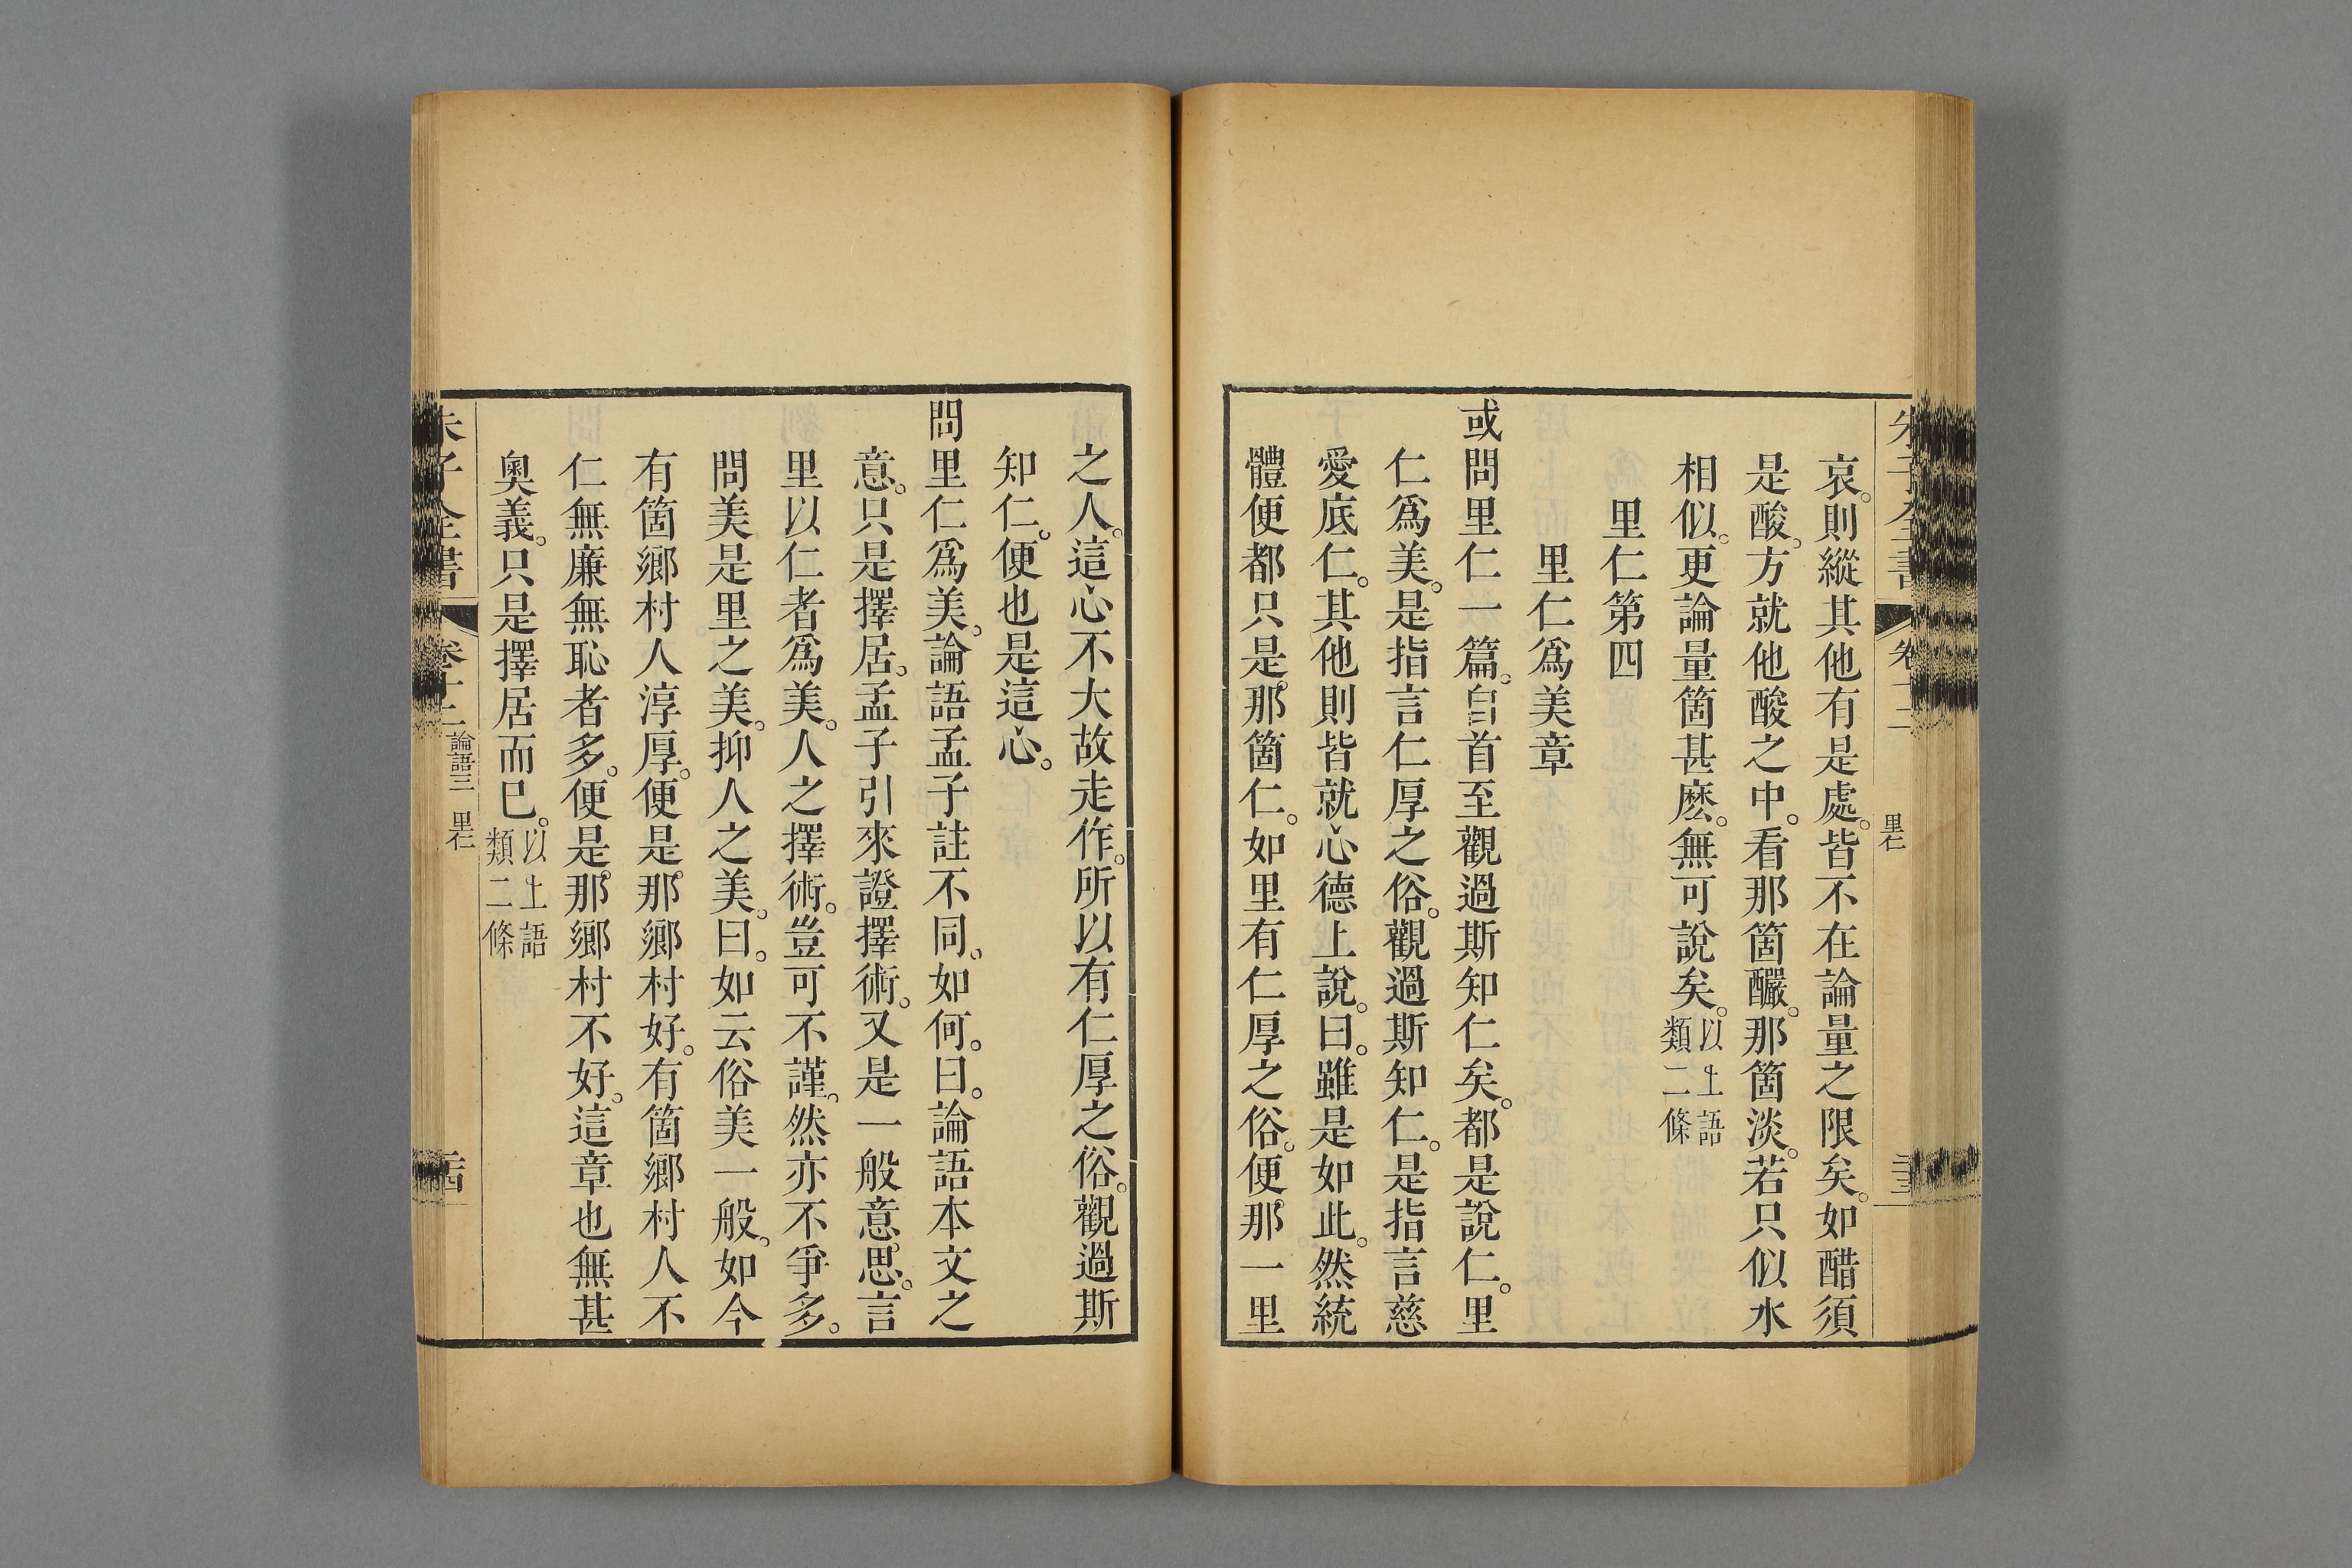 朱子全書 卷十二 里仁 三十三
哀。則縱其他有是處。皆不在論量之限矣。如醋須
是酸。方就他酸之中。看那箇釅。那箇淡。若只似水
相似。更論量箇甚麽。無可說矣。以上語類二條
里仁第四
里仁爲美章
或問里仁一篇。自首至觀過斯知仁矣。都是說仁。里
仁爲美。是指言仁厚之俗。觀過斯知仁。是指言慈
愛底仁。其他則皆就心德上說。曰。雖是如此。然統
體便都只是那箇仁。如里有仁厚之俗。便那一里
之人。這心不大故走作。所以有仁厚之俗。觀過斯
知仁。便也是這心。
問里仁爲美。論語孟子註不同。如何。曰。論語本文之
意。只是擇居。孟子引來證擇術。又是一般意思。言
里以仁者爲美。人之擇術。豈可不謹。然亦不爭多。
問美是里之美。抑人之美。曰。如云俗美一般。如今
有箇鄉村人淳厚。便是那鄉村好。有箇鄉村人不
仁無廉無恥者多。便是那鄉村不好。這章也無甚
奧義。只是擇居而已。以上語類二條
朱子全書 卷十二 論語三 里仁